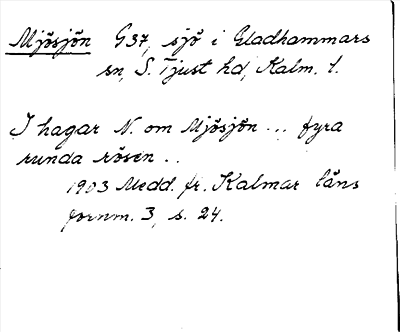 Mjösjön G37, sjö i Gladhammars
sn, S. Tjust hd, Kalm. l.
I hagar N. om Mjösjön ... fyra
runda rösen ..
1903 Medd. fr. Kalmar läns
fornm. 3, s. 24.